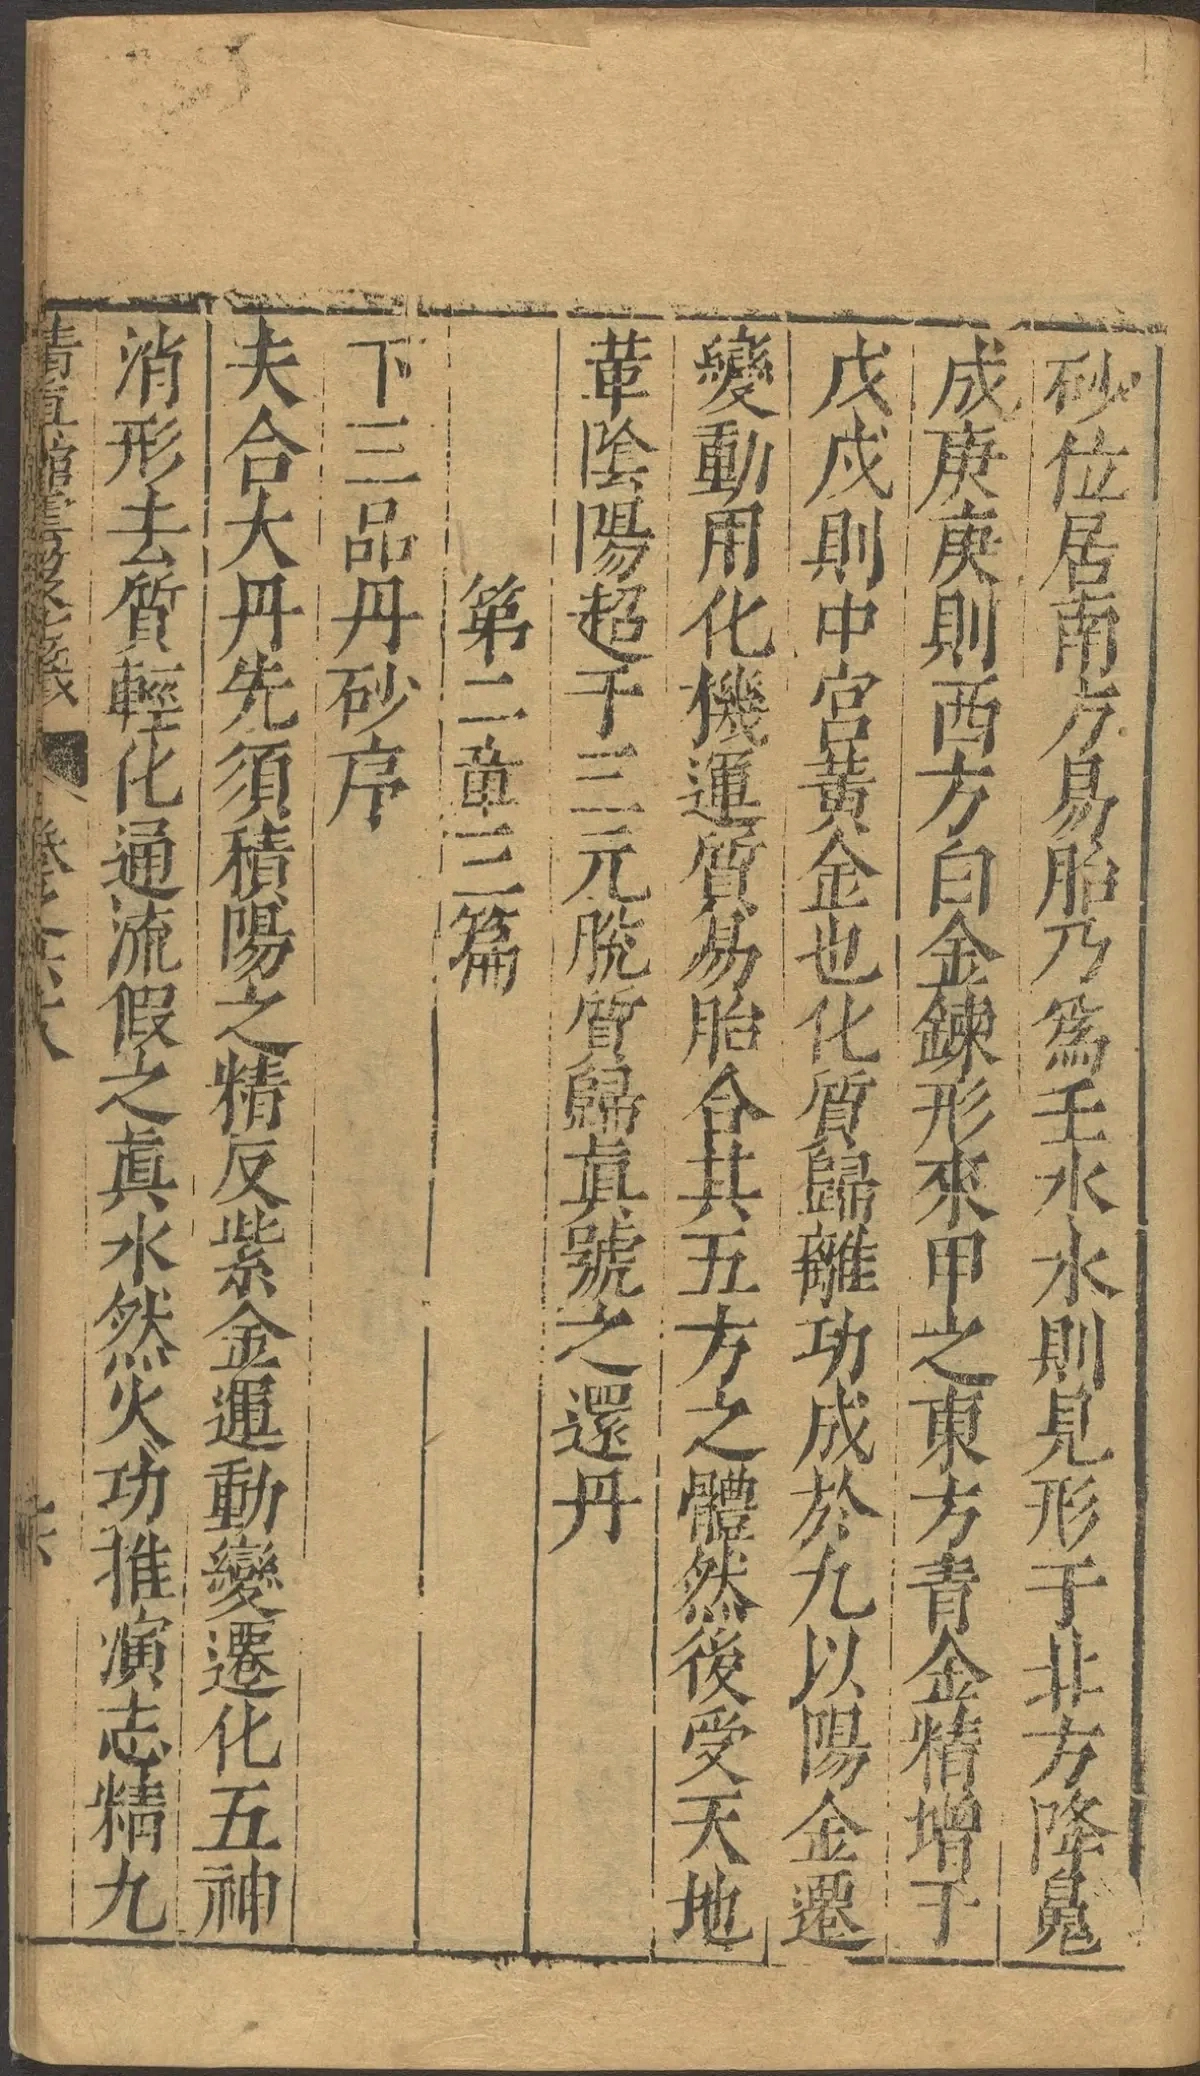 砂位居南方易胎乃爲壬水水則見形于北方降䰟
成庚庚則西方白金鍊形來甲之東方青金精增于
戊戌則中宮黃金也化質歸離功成於九以陽金遷
變動用化機運質易胎合其五方之體然後受天地
革陰陽超于三元脫質歸眞號之還丹
第二章三篇
下三品丹砂序
夫合大丹先須積陽之精反紫金運動變遷化五神
消形去質輕化通流假之眞水然火功推演志精九
清眞館雲笈七籤 卷之六十八